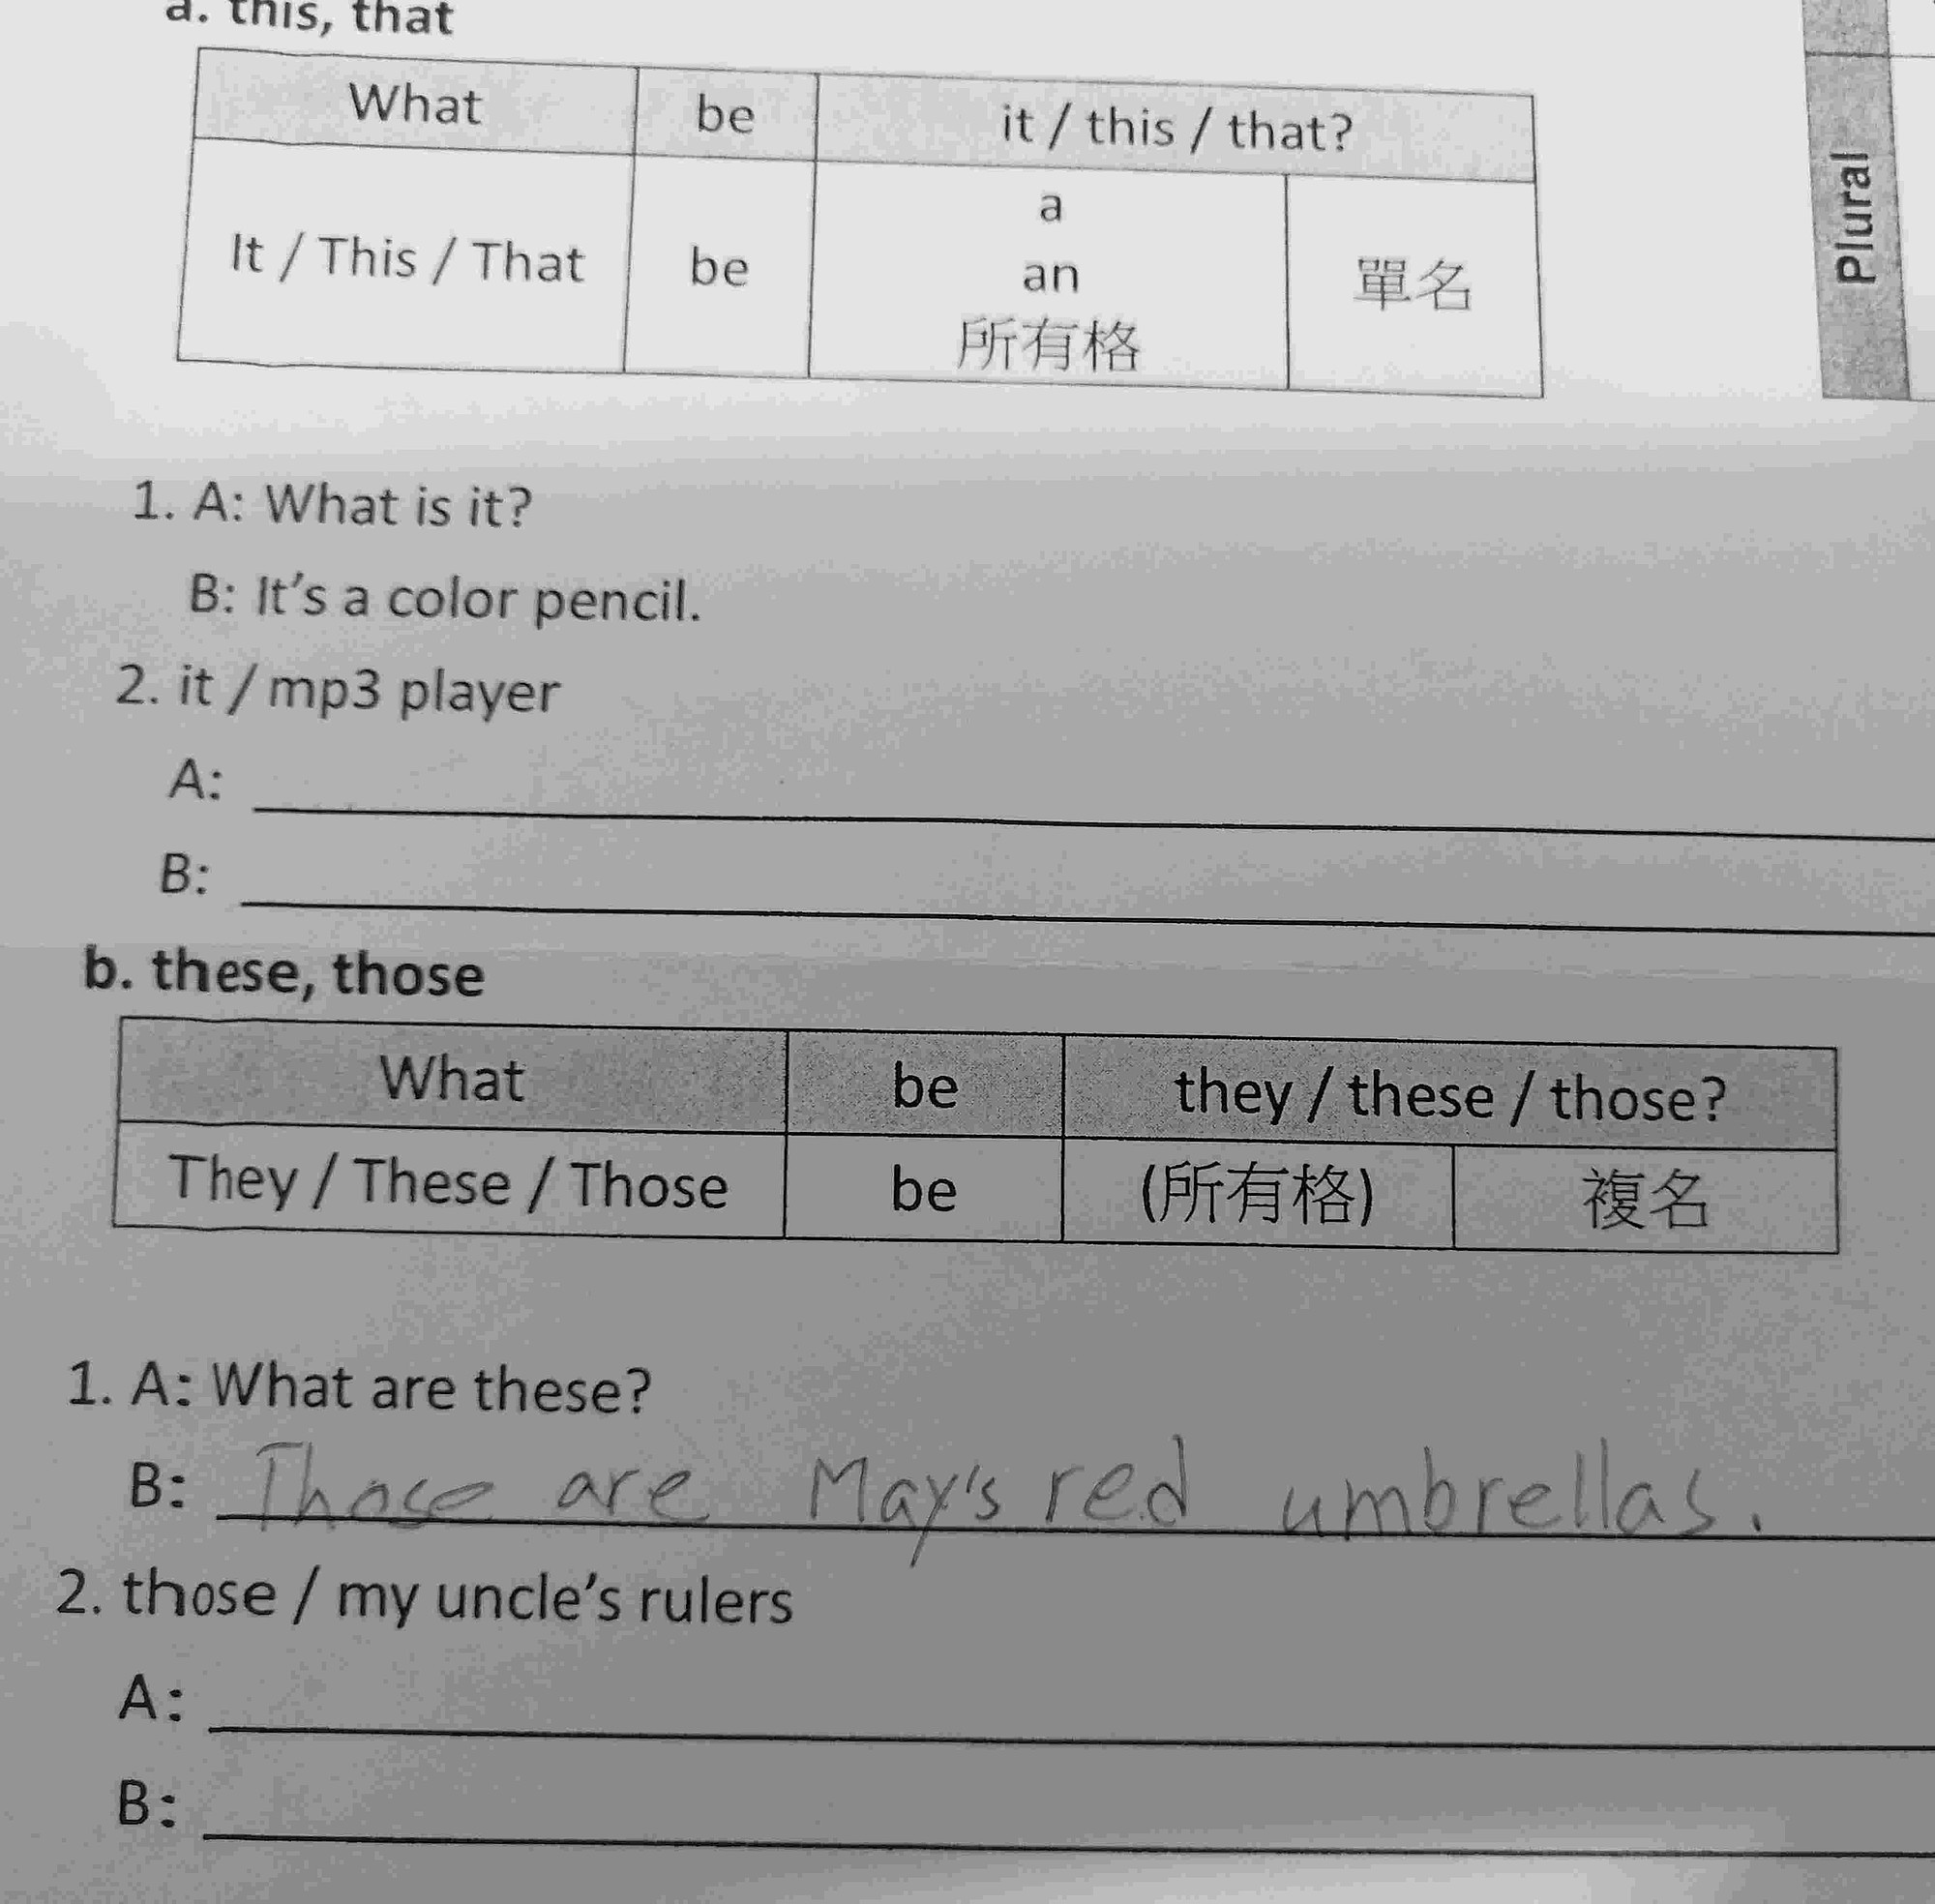 a. this, that
What be it / this / that?
a
It / This / That be an 單名
所有格
Plural
1. A: What is it?
B: It's a color pencil.
2. it / mp3 player
A:
B:
b. these, those
What be they / these / those?
They / These / Those be (所有格) 複名
1. A: What are these?
B: Those are May's red umbrellas.
2. those / my uncle's rulers
A:
B: